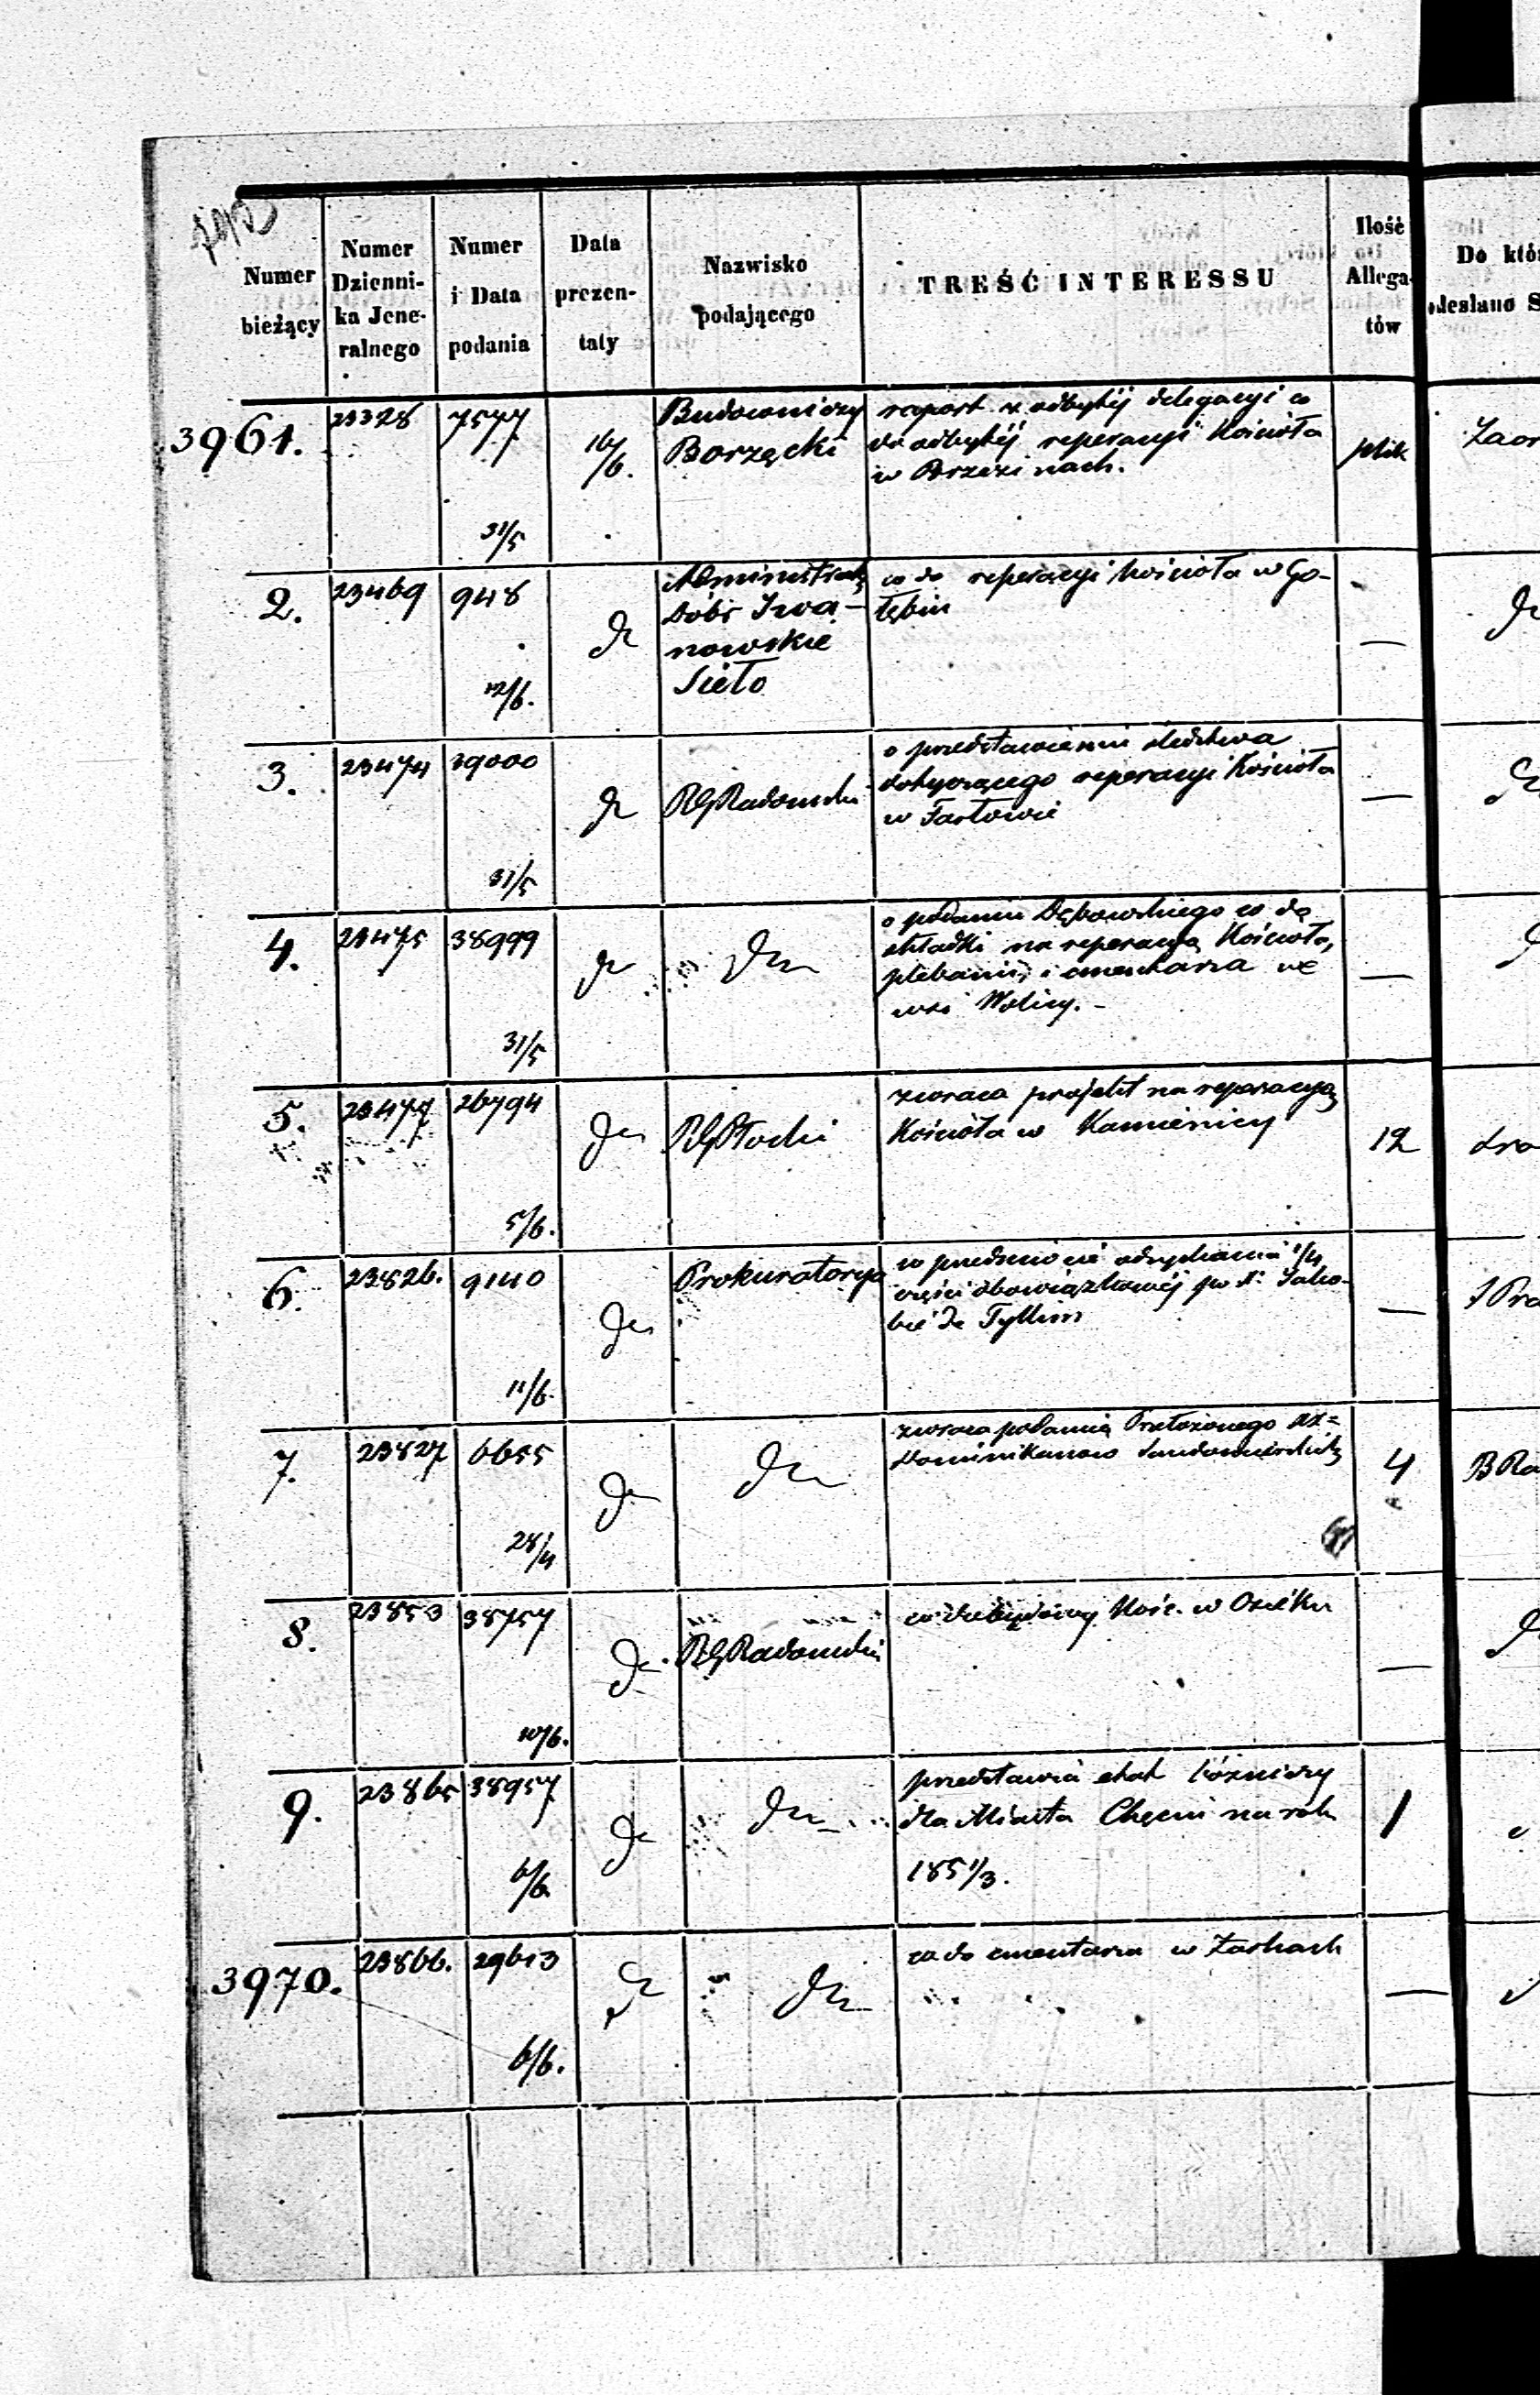 Numer bieżący
Numer Dzienni-ka Jene-ralnego
Numer i Data podania
Data prezen-taty
Nazwisko podającego
TREŚĆ INTERESSU
Ilość Allega-tów
Do któ
odesłano S
3961.
23328
7577
31/5
16/6.
Budowniczy
Borzęcki
raport z odbytej delegacyi co
do odbytej reperacyi Kościoła
w Brzezinach.
plik
2.
23469
948
12/6.
Dr
dóbr Iwa-
nowskie
Sieło
co do reperacyi Kościoła w Go-
łębiu
—
3.
23474
39000
31/5
Dr
RGRadomski
o przedstawienie śledztwa
dotyczącego reperacyi Kościoła
w Tarłowie
—
4.
23475
38999
31/5
o podaniu Dębowskiego co do
składki na reperacyą Kościoła,
plebanii, i cmentarza we
wsi Wolicy. -
—
5.
23477
26794
5/6.
RGPłocki
zwraca projekt na reperacyą
Kościoła w Kamienicy
12
6.
23826.
9140
11/6.
Prokuratorya
w przedmiocie 1/4
części obowiązkowej po X:
—
7.
23827
6655
28/4
zwraca podanie Przełożonego XX=
Dominikanów Sandomierskich
4
8.
23853
38757
10/6.
RGRadomski
Kośc. w Osieku
—
9.
23865
38957
6/6.
przedstawia etat bóżniczy
dla Miasta Chęcin na rok
1851/3.
1
3970.
23866.
29613
6/6.
co do cmentarza w Żarkach
—